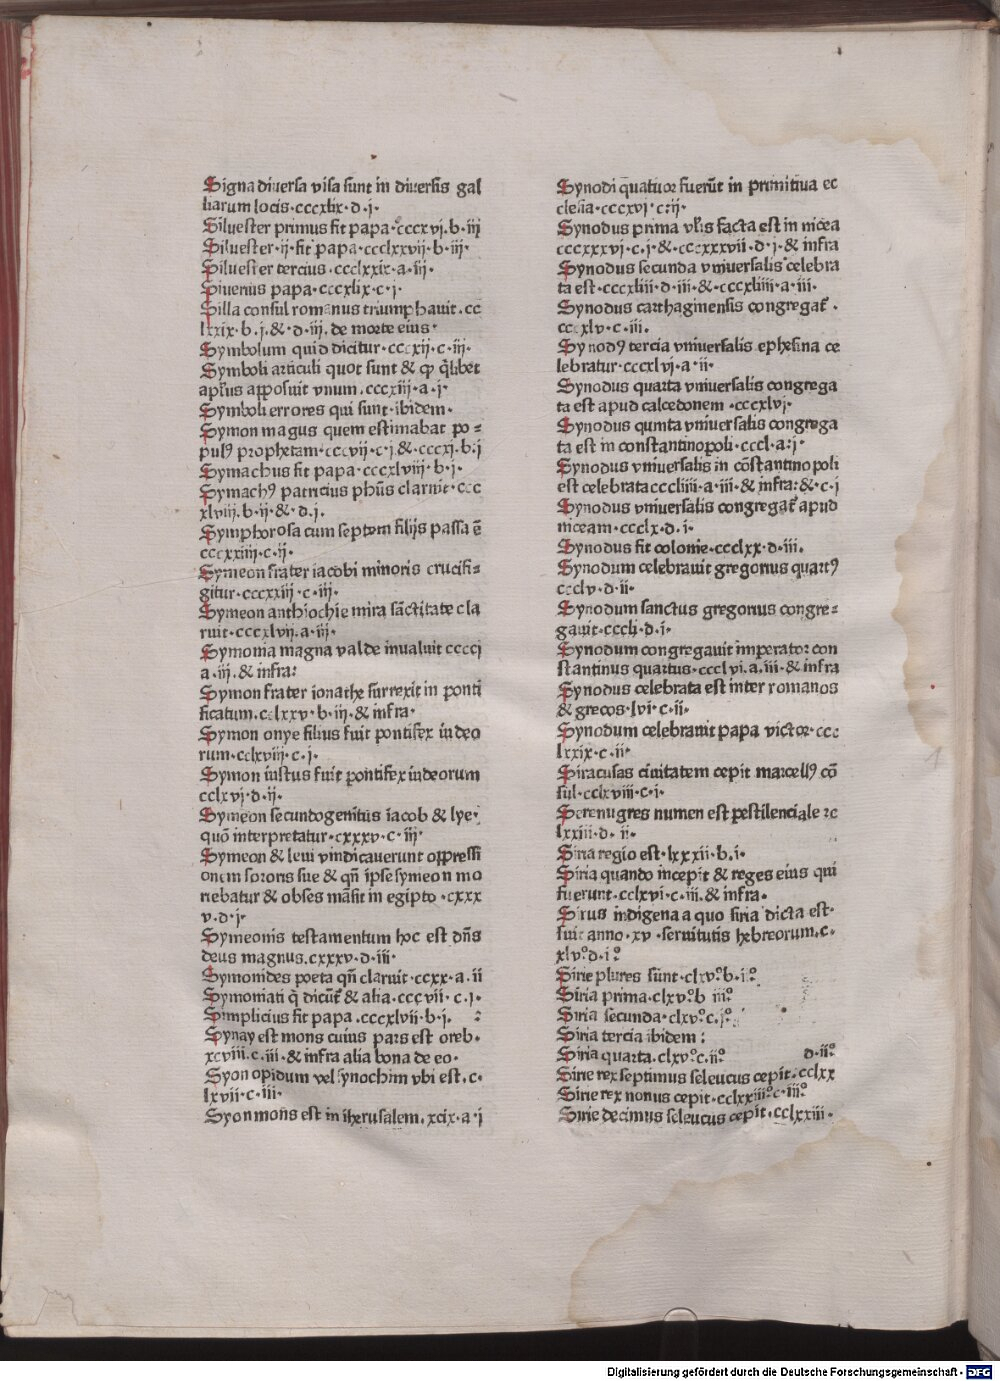 Signa diuersa visa sunt in diuersis gal
liarum locis·cccxlix·d·j·
Siluester primus fit papa·cccxvj·b·iij
Siluester·ij·fit papa·ccclxxvij·b·iij·
Siluester tercius·ccclxxix·a·iij·
Siuerius papa·cccxlix·c·j·
Silla consul romanus triumphauit·cc
lxxix·b·j·&·d·iij·de morte eius·
Symbolum quid dicitur·cccxij·c·iij·
Symboli articuli quot sunt & ꝙ q̄libet
apl̓us apposuit vnum·cccxiij·a·j·
Symboli errores qui sunt·ibidem·
Symon magus quem estimabat po⸗
pulꝰ prophetam·cccvij·c·j·&·cccxj·b·j
Symachus fit papa·cccxlviij·b·j·
Symachꝰ patricius ph̄us claruit·ccc
xlviij·b·ij·&·d·j·
Symphorosa cum septem filijs passa ē
cccxxiiij·c·ij·
Symeon frater iacobi minoris crucifi⸗
gitur·cccxxiij·c·iij·
Symeon anthiochie mira sāctitate cla
ruit·cccxlvij·a·iij·
Symonia magna valde inualuit ccccj
a·iij·& infra:
Symon frater ionathe surrexit in ponti
ficatum·cclxxv·b·iij·& infra·
Symon onye filius fuit pontifex iudeo
rum·cclxviij·c·j·
Symon iustus fuit pontifex iudeorum
cclxvj·d·ij·
Symeon secundogenitus iacob & lye·
quō interpretatur·cxxxv·c·iij·
Symeon & leui vindicauerunt oppressi
onem sororis sue & qn̄ ipse symeon mo
riebatur & obses māsit in egipto·cxxx
v·d·j·
Symeonis testamentum hoc est dn̄s
deus magnus·cxxxv·d·iij·
Symonides poeta qn̄ claruit·ccxx·a·ij
Symoniati q̄ dicūt̓ & alia·cccvij·c·j·
Simplicius fit papa·cccxlvij·b·j· :
Synay est mons cuius pars est oreb·
xcviij·c·iij·& infra alia bona de eo·
Syon opidum vel synochim vbi est·c·
lxvij·c·iij·
Syon mons est in iherusalem·xcix·a·j
Synodi quatuor fuerūt in primitiua ec
clesia·cccxvj·c:ij·
Synodus prima vl̓is facta est in nicea
cccxxxvj·c·j·&·cccxxxvij·d·j·& infra
Synodus secunda vniuersalis celebra
ta est·cccxliij·d·iij·&·cccxliiij·a·iij·
Synodus carthaginensis congregat̓·
cccxlv·c·iij·
Synodꝰ tercia vniuersalis ephesina ce
lebratur·cccxlvj·a·ij·
Synodus quarta vniuersalis congrega
ta est apud calcedonem·cccxlvj·
Synodus quinta vniuersalis congrega
ta est in constantinopoli·cccl·a:j·
Synodus vniuersalis in cōstantinopoli
est celebrata cccliiij·a·iij·& infra:&·c·j
Synodus vniuersalis congregat̓ apud
niceam·ccclx·d·j·
Synodus fit colonie·ccclxx·d·iij·
Synodum celebrauit gregorius quartꝰ
ccclv·d·ij·
Synodum sanctus gregorius congre⸗
gauit·cccli·d·j·
Synodum congregauit imperator con
stantinus quartus·ccclvj·a·iij·& infra
Synodus celebrata est inter romanos
& grecos·lvj·c·ij·
Synodum celebrauit papa victor·ccc
lxxix·c·ij·
Siracusas ciuitatem cepit marcellꝰ cō
sul·cclxviij·c·j·
Serenugres numen est pestilenciale ꝛc
lxxiij·d·ij·
Siria regio est·lxxxij·b·j·
Siria quando incepit & reges eius qui
fuerunt·cclxvj·c·iij·& infra·
Sirus indigena a quo siria dicta est·
fuit anno·xv·seruitutis hebreorum·c·
xlvº·d·iº
Sirie plures sunt·clxvº·b·iº·
Siria prima·clxvº·b iijº·
Siria secunda·clxvº·c·jº·
Siria tercia ibidem:
Siria quarta·clxvº·c·ijº· d·ijº·
Sirie rex septimus seleucus cepit·cclxx
Sirie rex nonus cepit·cclxxiijº·c·iijº·
Sirie decimus seleucus cepit·cclxxiij·
Digitalisierung gefördert durch die Deutsche Forschungsgemeinschaft - DFG